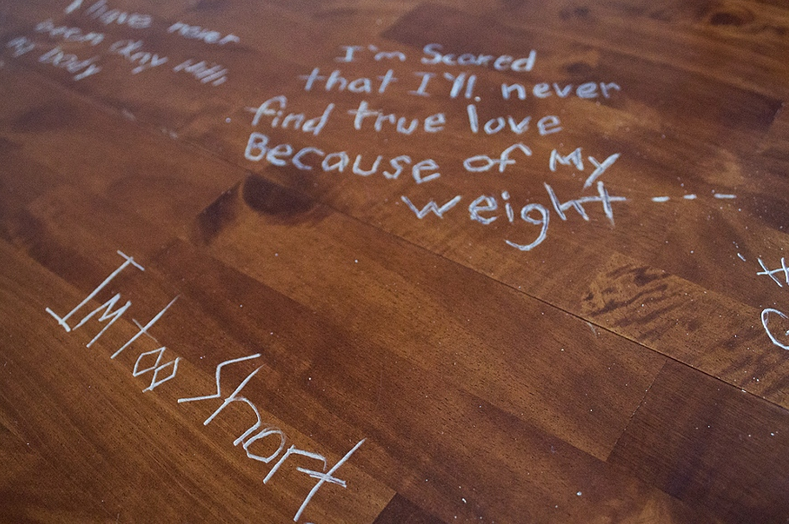 I have never
been okay with
my body
I'm Scared
that I'll never
find true love
Because of My
weight----
I'm too Short